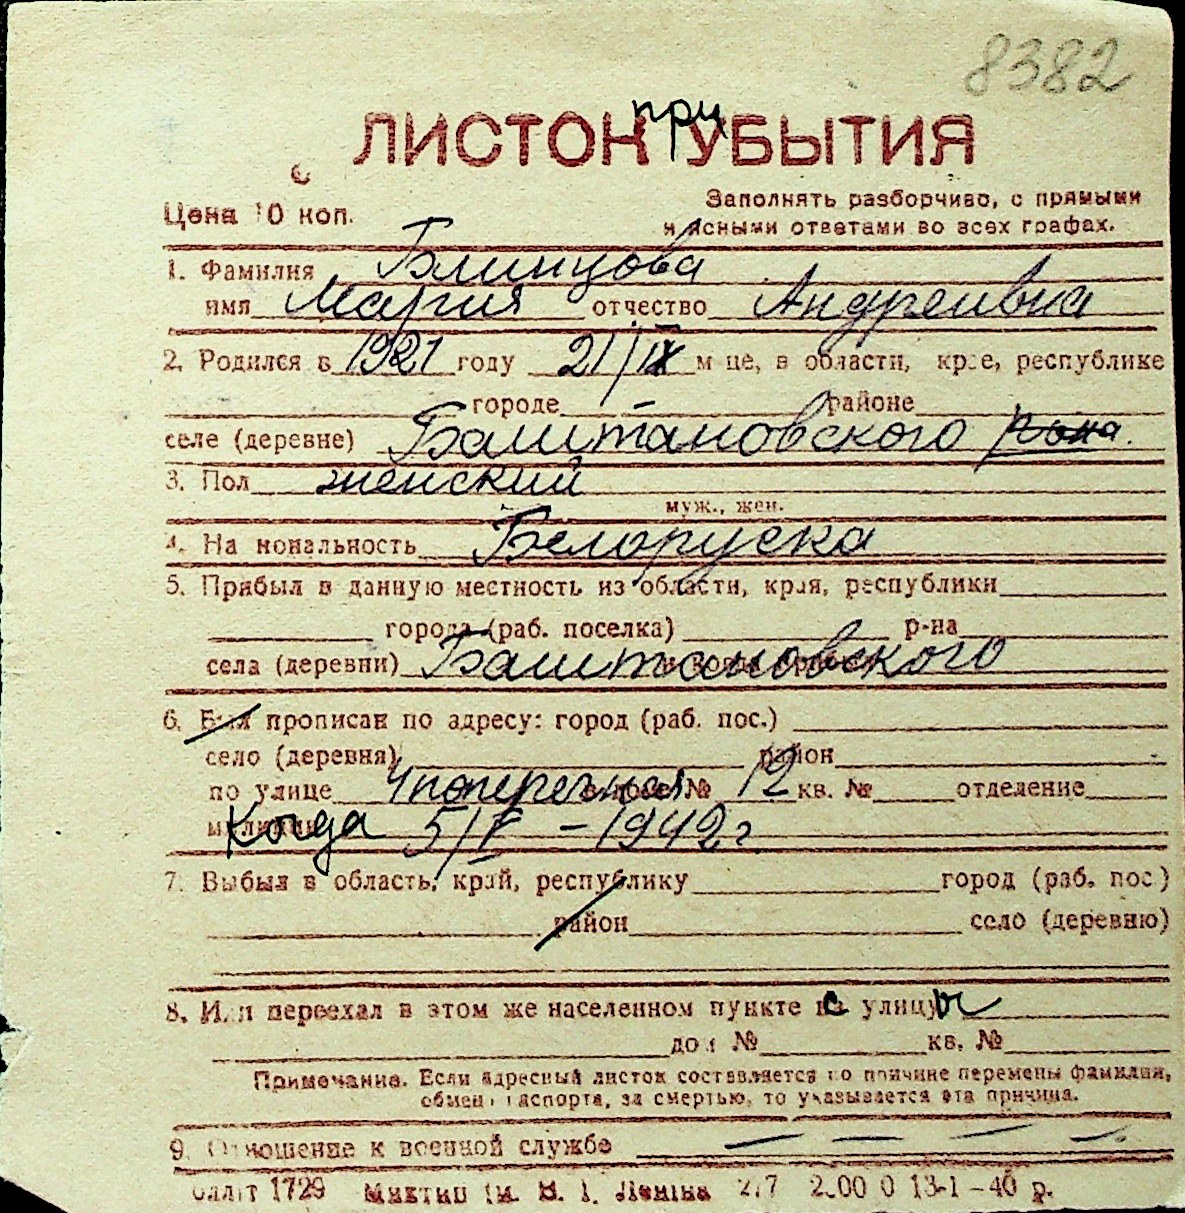 8382
ЛИСТОК при УБЫТИЯ
Цена 10 коп.
Заполнять разборчиво, с прямыми
и ясными ответами во всех графах.
1. Фамилия Блинцова
имя Мария отчество Андреивна
2. Родился в 1921 году 21/IX м-це, в области, крае, республике
городе — районе
селе (деревне) Баштановского р-она.
3. Пол женский
муж., жен.
4. Национальность Белоруска
5. Прибыл в данную местность из области, края, республики
города (раб. поселка) р-на
села (деревни) Баштановского
6. Был прописан по адресу: город (раб. пос.)
село (деревня) район
по улице 4 поперечная № 12 кв. № отделение
милиции Когда 5/V – 1942 г.
7. Выбыл в область, край, республику город (раб. пос)
район село (деревню)
8. Или переехал в этом же населенном пункте с улицы
дом № кв. №
Примечание. Если адресный листок составляется по причине перемены фамилии,
обмена паспорта, за смертью, то указывается эта причина.
9. Отношение к военной службе — — — —
1729 им. В. І. Леніна 13-1-40 р.